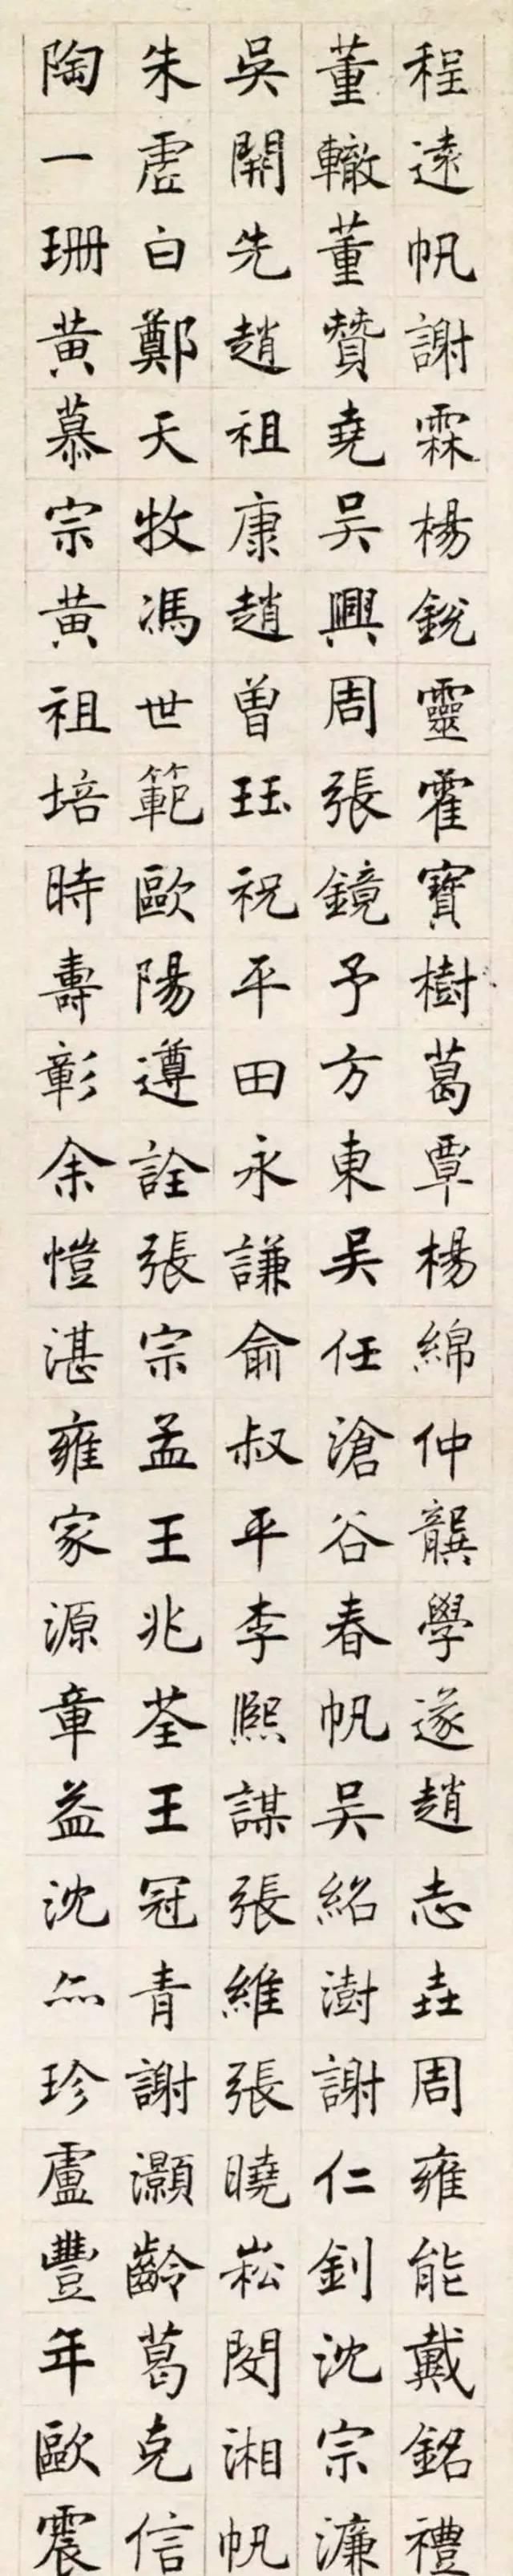 程遠帆謝霖楊銳靈霍寶樹葛覃楊綿仲龔學遂趙志垚周雍能戴銘禮
董轍董贊堯吳興周張鏡予方東吳任滄谷春帆吴紹澍謝仁釗沈宗濂
吳開先趙祖康趙曾珏祝平田永謙俞叔平李熙謀張維張曉崧閔湘帆
朱虛白鄭天牧馮世範歐陽遵詮張宗孟王兆荃王冠青謝灝齡葛克信
陶一珊黃慕宗黃祖培時壽彰余愷湛雍家源章益沈珍盧豐年歐震